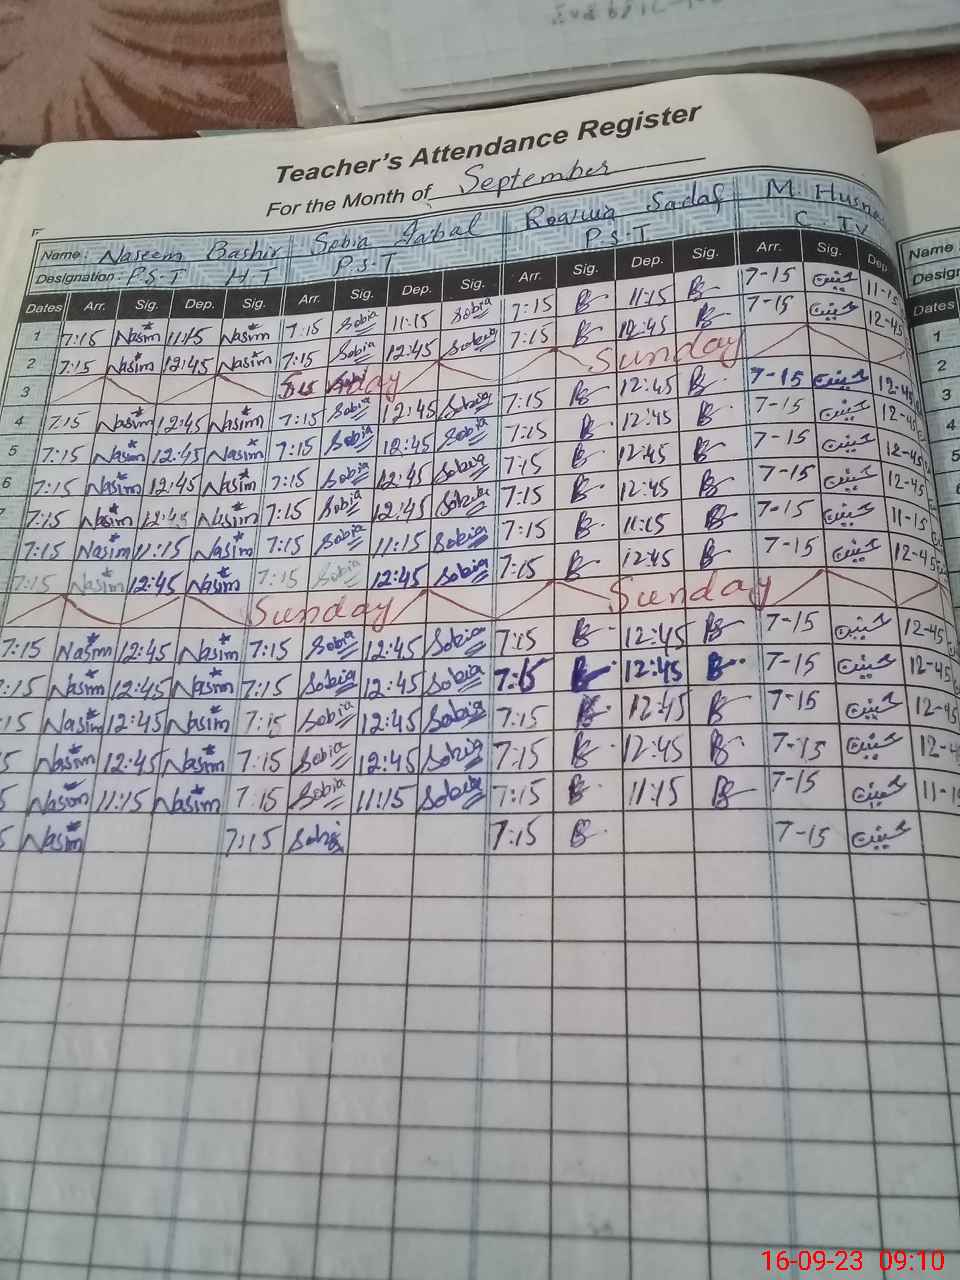 Teacher's Attendance Register
For the Month of September
Name: Naseem Bashir Sobia Iqbal Sadaf M. Husna
Designation: P.S.T H.T P.S.T P.S.T C.T
Dates Arr. Sig. Dep. Sig. Arr. Sig. Dep. Sig. Arr. Sig. Dep. Sig. Arr. Sig. Dep
1 7:15 Nasim 11:15 Nasim 7:15 Sobia 11:15 Sobia 7:15 11:15 7-15 11-15
2 7:15 Nasim 12:45 Nasim 7:15 Sobia 12:45 Sobia 7:15 12:45 7-15 12-45
3 Sunday
4 7:15 Nasim 12:45 Nasim 7:15 Sobia 12:45 Sobia 7:15 12:45 7-15 12-45
5 7:15 Nasim 12:45 Nasim 7:15 Sobia 12:45 Sobia 7:15 12:45 7-15 12-45
6 7:15 Nasim 12:45 Nasim 7:15 Sobia 12:45 Sobia 7:15 12:45 7-15 12-45
7:15 Nasim 12:45 Nasim 7:15 Sobia 12:45 Sobia 7:15 12:45 7-15 12-45
7:15 Nasim 11:15 Nasim 7:15 Sobia 11:15 Sobia 7:15 11:15 7-15 11-15
7:15 Nasim 12:45 Nasim 7:15 Sobia 12:45 Sobia 7:15 12:45 7-15 12-45
Sunday Sunday
7:15 Nasim 12:45 Nasim 7:15 Sobia 12:45 Sobia 7:15 12:45 7-15 12-45
7:15 Nasim 12:45 Nasim 7:15 Sobia 12:45 Sobia 7:15 12:45 7-15 12-45
:15 Nasim 12:45 Nasim 7:15 Sobia 12:45 Sobia 7:15 12:45 7-15 12-45
5 Nasim 12:45 Nasim 7:15 Sobia 12:45 Sobia 7:15 12:45 7-15 12-4
5 Nasim 11:15 Nasim 7:15 Sobia 11:15 Sobia 7:15 11:15 7-15 11-1
5 Nasim 7:15 Sobia 7:15 7-15
Name
Design
Dates
1
2
3
4
5
16-09-23 09:10